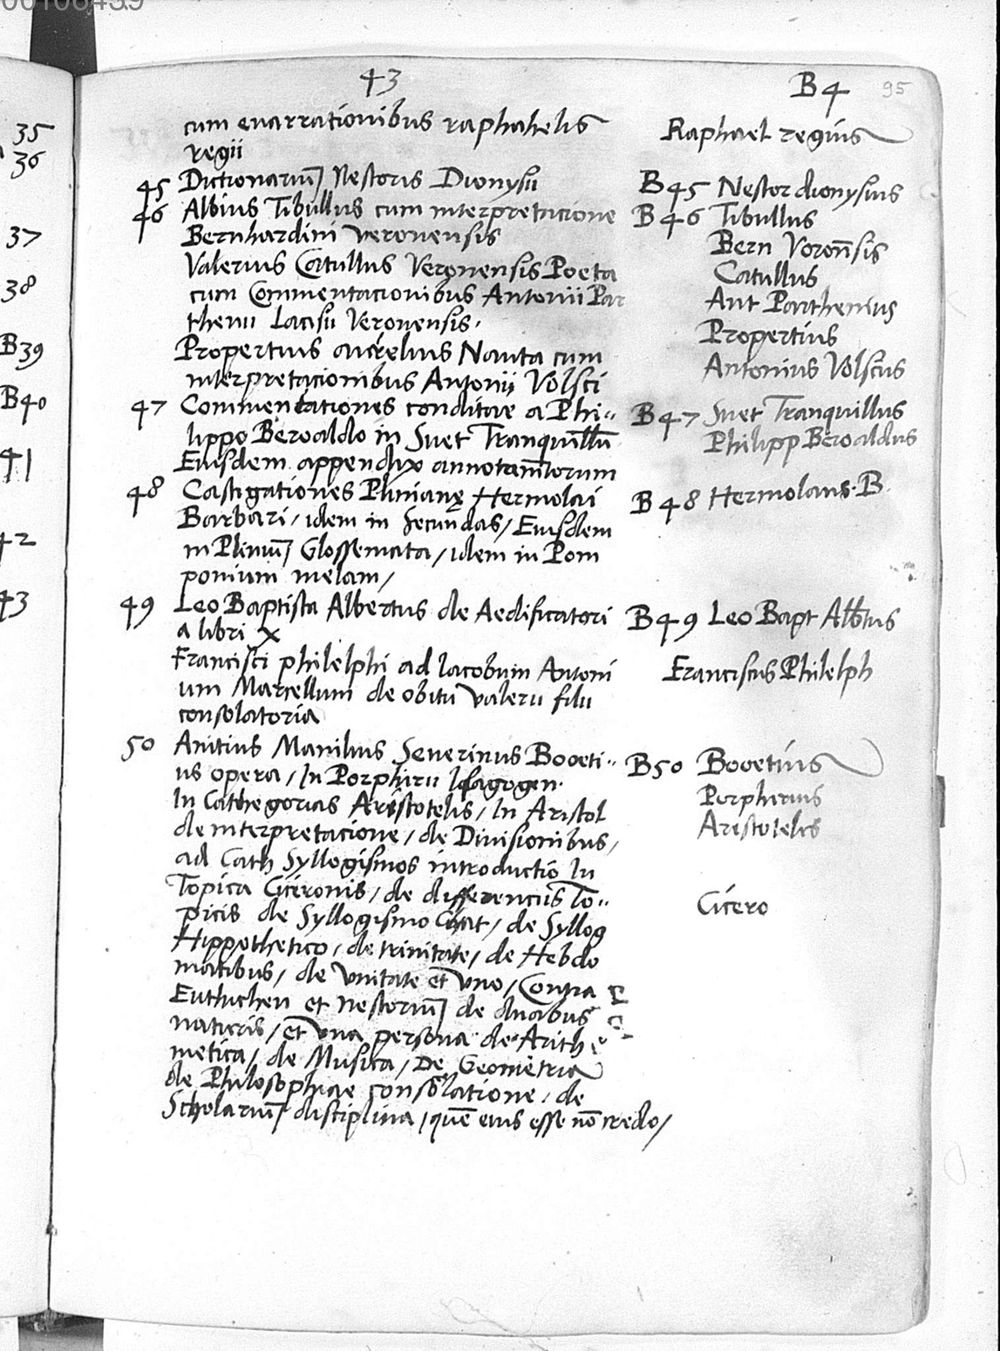 43
B 4 95
cum enarrationibus raphahelis
regii
Raphael regius
45 Dictionariu̅ Nestoris Dionysii
B 45 Nestor dionysius
46 Albius Tibullus cum interpretacione
Bernhardini veronensis
B 46 Tibullus
Bern Voron̅sis
Valerius Catullus Veronensis Poeta
cum Commentacionibus Antonii Par
thenii Lacisii Veronensis.
Catullus
Ant Parthenius
Propertius aurelius Nauta cum
interpretacionibus Antonij Volsci
Propertius
Antonius Volscus
47 Commentationes conditae a Phi„
lippo Beroaldo in Suet Tranquillu̅
Eiusdem appendix annotam̅torum
B 47 Suet Tranquillus
Philipp Beroaldus
48 Castigationes Plinianę Hermolai
Barbari / idem in secundas / Eiusdem
in Pliniu̅ Glossemata / idem in Pom
ponium melam /
B 48 Hermolaus. B
49 Leo Baptista Albertus de Aedificatori
a libri X
B 49 Leo Bapt Albtus
Francisci philelphi ad Iacobum Antoni
um Marcellum de obitu valerii filii
consolatoria
Franciscus Philelph
50 Anitius Manlius Severinus Boveti„
us opera / In Porphirii Isagogen.
In Cathegorias Arestotelis / In Aristol
de interpretacione / de Divisionibus /
ad Cath Syllogismos introductio In
Topica Ciceronis / de differenciis To„
picis de Syllogismo / de Syllog
Hippothetico / de trinitate / de Hebdo
matibus / de vnitate et vno / Contra
Euthichen et Nestoriu̅ de duabus
naturis / et vna persona de Arith
metica / de Musica / De Geometria
de Philosophiae consolatione / de
Scholariu̅ disciplina / que̅ eius esse no̅ credo /
B50 Bovetius
Porphirius
Arestoteles
Cicero
35
36
37
38
B39
B40
41
42
43